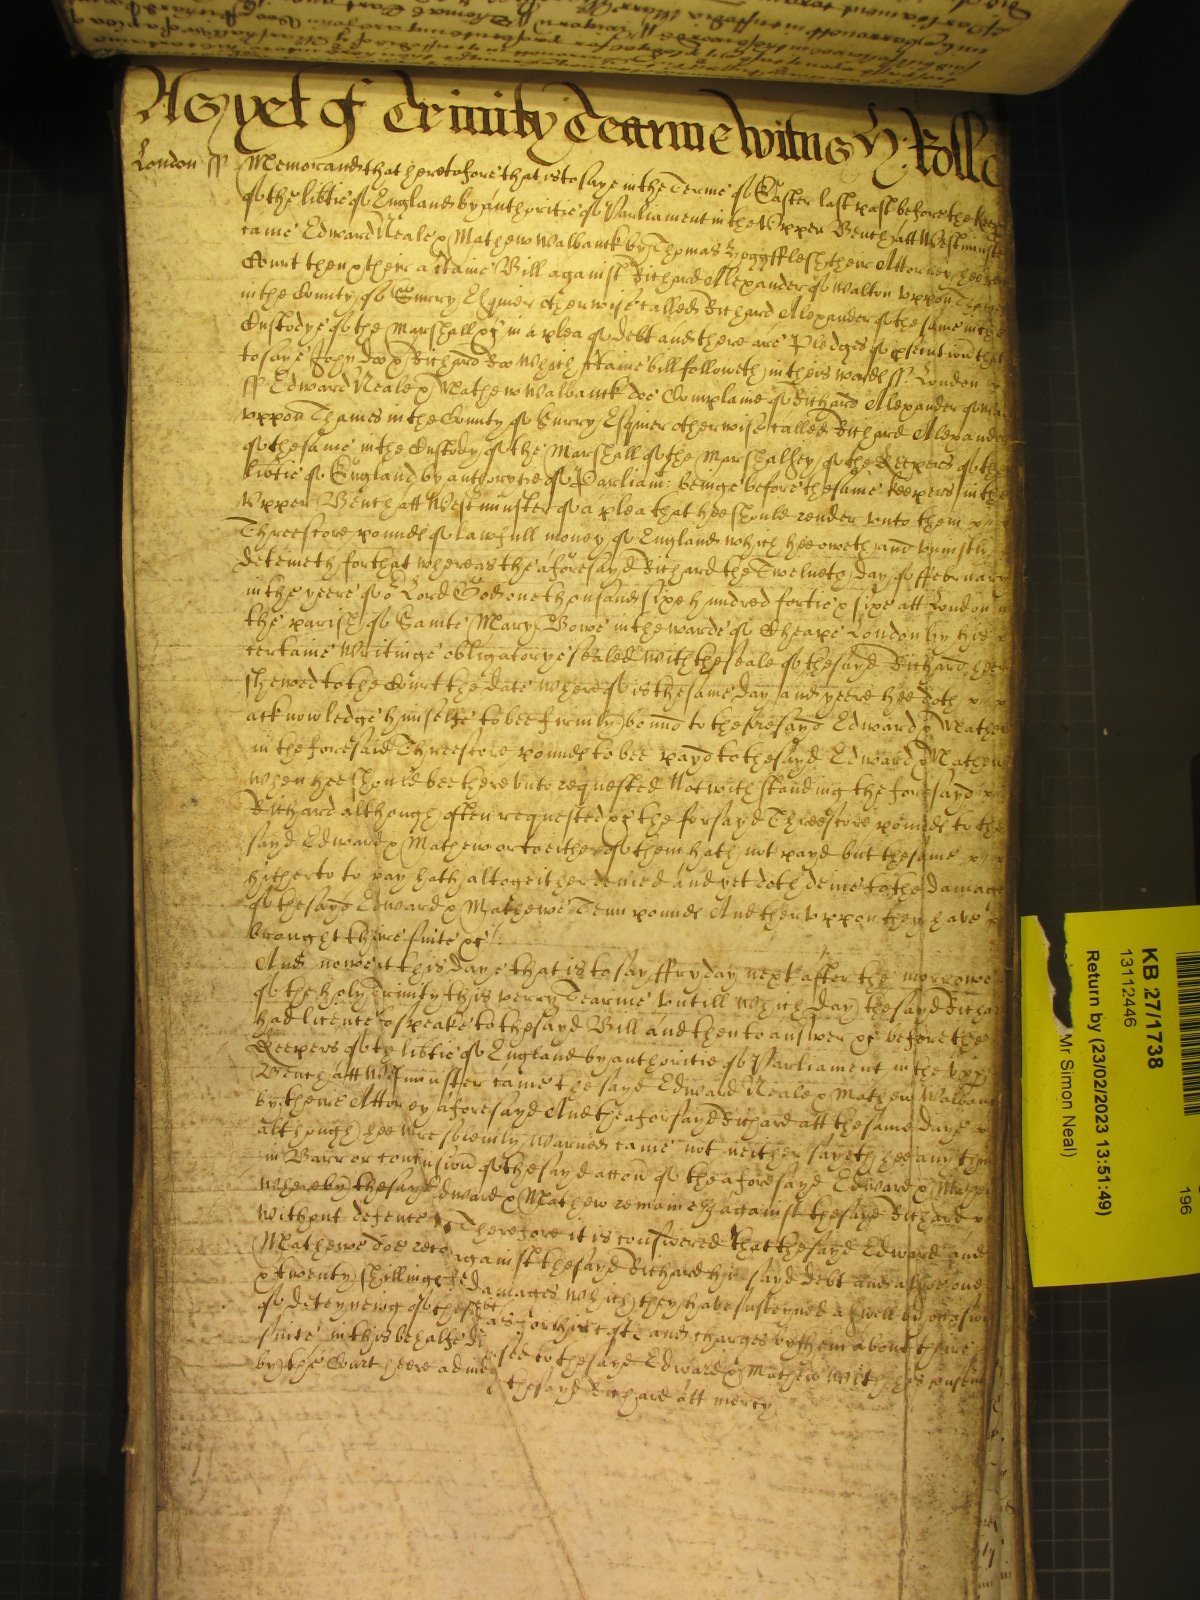 As yet of Trinity Tearme Witnes H: Rolle
London ss Memorand that heretofore that is to saye in the Terme of Easter last past before the Keep
of the lib'tie of England by authoritie of Parliament in the Upper Bench att Westminster
came Edward Neale & Mathew Walbanck by Thomas Hoggflesh their Attorney heere in
Court then & their a c'taine Bill against Richard Alexander of Walton uppon Thames
in the County of Surry Esquier otherwise called Richard Alexander of the same in the
Custodye of the Marshall &c in a plea of debt and there are Pledges of p'secution that is
to saye John Doo & Richard Roo Which c'taine bill followeth in theis words ss London
ss Edward Neale & Mathew Walbanck doe Complaine of Richard Alexander of Walton
uppon Thames in the County of Surry Esquier otherwise called Richard Alexander
of the same in the Custody of the Marshall of the Marshalsey of the Keepers of the
lib'tie of England by authorytie of Parliam: beinge before the same keepers in the
Upper Bench att Westminster of a plea that hee should render unto them
Threescore pounds of lawfull money of England which hee oweth and uniustly
deteineth for that whereas the aforesayd Richard the Twelueth day of February
in the yeere of o'r Lord God one thousand six hundred fortie & sixe att London in
the parish of Sainte Mary Bowe in the warde of Cheape London by his
certaine Writinge obligatorye sealed with the seale of the sayd Richard heere
shewed to the Court the date whereof is the same day and yeere hee doth
acknowledge himselfe to bee firmily bound to the foresayd Edward & Mathew
in the foresaid Threescore pounds to bee payd to the sayd Edward & Mathew
when hee should bee thereunto requested Notwithstanding the foresayd
Richard although often requested &c the forsayd Threescore pounds to the
sayd Edward & Mathew or to either of them hath not payd but the same
hitherto to pay hath altogeither denied and yet doth denie to the damage
of the sayd Edward & Mathewe Tenn pounds And theruppon they have
brought theire suite &c
And nowe att this daye that is to say ffryday next after the morrowe
of the holy Trinity this verry Tearme untill which day the sayd Richard
had licence to speake to the sayd Bill and then to answer &c before the
Keepers of ye lib'tie of England by authoritie of Parliament in the Upp
Bench att Westminster came the sayd Edward Neale & Mathew Walbanck
by theire Attorney aforesayd And the aforsayd Richard att the same daye
although hee were solemly warned came not neither sayeth hee any thing
in Barr or conclusion of the sayd action of the aforesayd Edward & Mathew
whereby the sayd Edward & Mathew remaineth against the sayd Richard
without defence Therefore it is considered that the sayd Edward and
Mathewe doe reco against the sayd Richard his sayd debt and alsoe one
& twenty shillings damages which they have susteyned aswell by occasion
of deteyneing of the sd debt as for his costs and charges by them about theire
suite in this behalfe sed to the sayd Edward & Mathew with his consent
by the Court heere adiudg the sayd Richard att mercy
KB 27/1738
13112446
Return by (23/02/2023 13:51:49)
Mr Simon Neal)
196